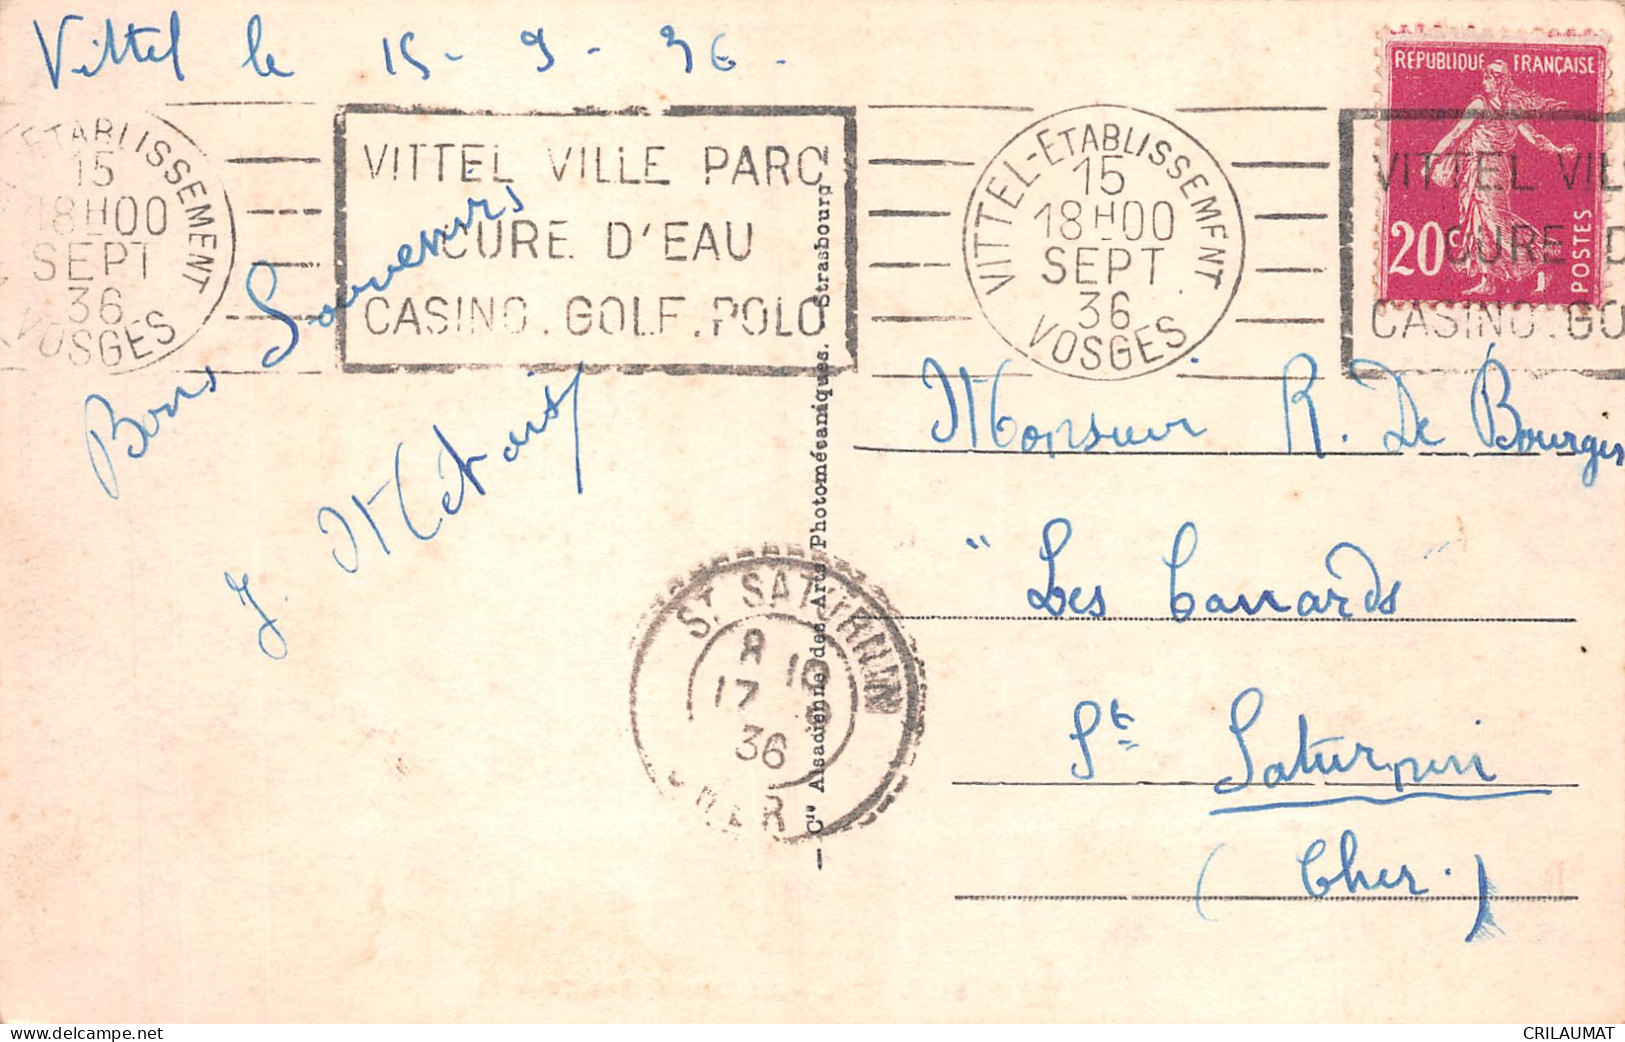 Vittel le 15-9-36.
Bons Souvenirs
J.
ETABLISSEMENT
15
18H00
SEPT
36
VOSGES
VITTEL VILLE PARC
CURE D'EAU
CASINO. GOLF. POLO
VITTEL-ETABLISSEMENT
15
18H00
SEPT
36
VOSGES
RÉPUBLIQUE FRANÇAISE
20c
POSTES
VITTEL VIL
CURE D
CASINO. GO
Monsieur R. De Bourges
"Les Canards"
St Saturnin
(Cher.)
ST SATURNIN
8 10
17 9
36
CHER
— Cie Alsacienne des Arts Photomécaniques. Strasbourg —
www.delcampe.net
CRILAUMAT